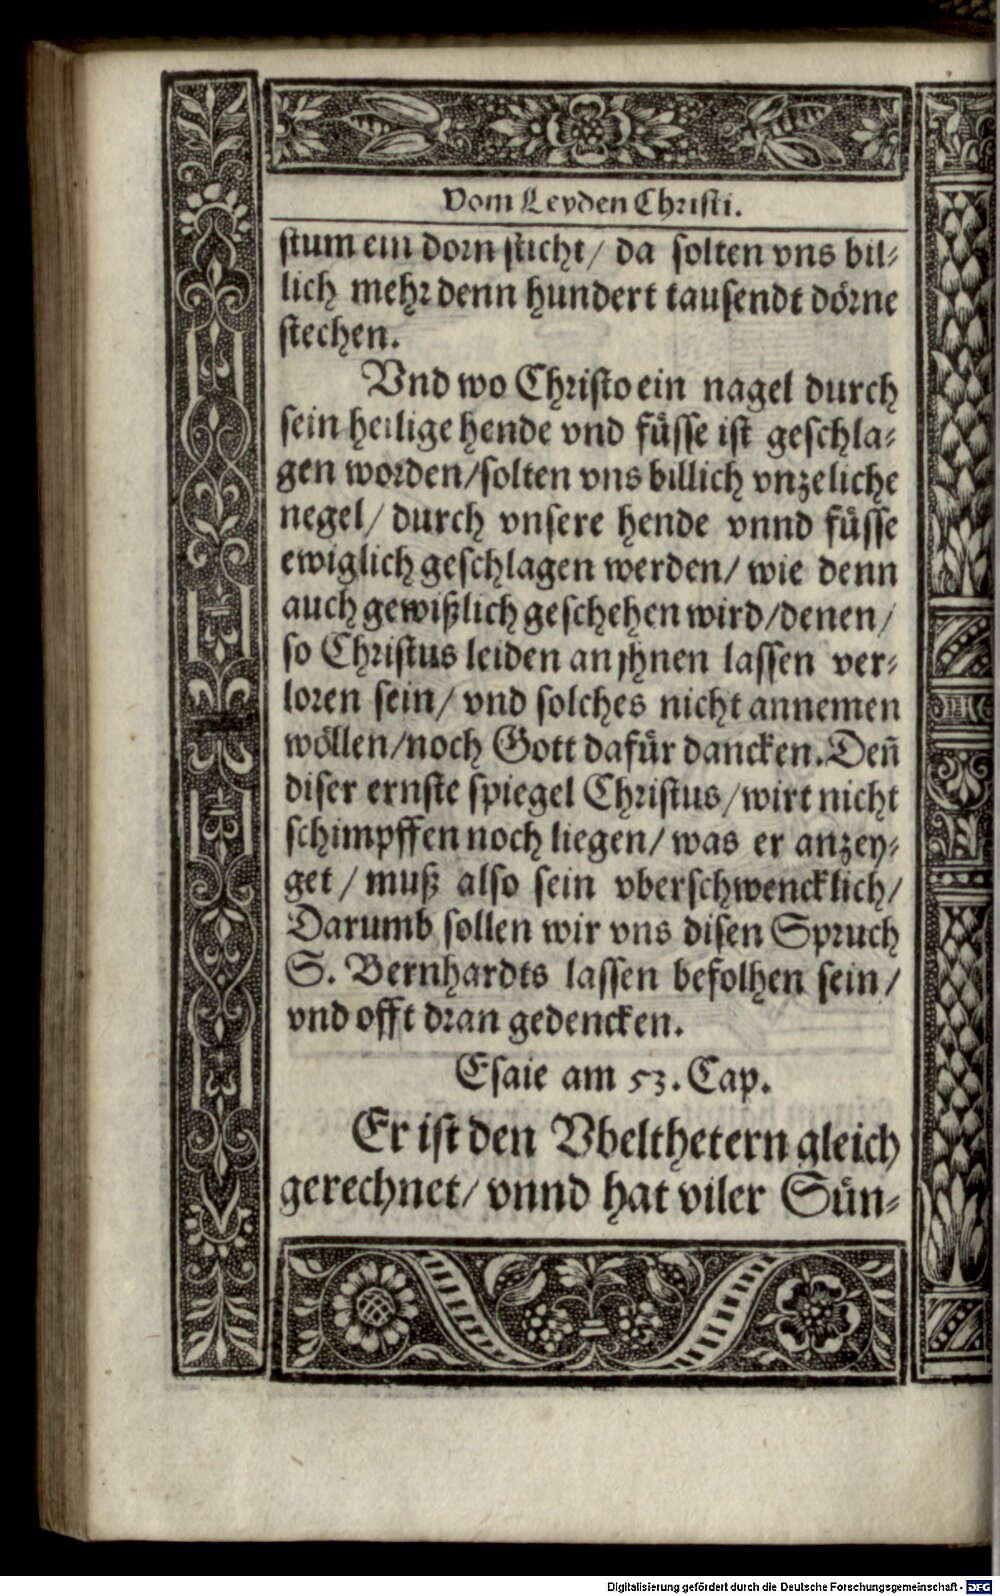 Vom Leyden Christi.
stum ein dorn sticht/ da solten vns bil⸗
lich mehr denn hundert tausendt dörne
stechen.
Vnd wo Christo ein nagel durch
sein heilige hende vnd füsse ist geschla⸗
gen worden/solten vns billich vnzeliche
negel/ durch vnsere hende vnnd füsse
ewiglich geschlagen werden/ wie denn
auch gewißlich geschehen wird/denen/
so Christus leiden an jhnen lassen ver⸗
loren sein/ vnd solches nicht annemen
wöllen/noch Gott dafür dancken.Den̄
diser ernste spiegel Christus/wirt nicht
schimpffen noch liegen/ was er anzey⸗
get/ muß also sein vberschwencklich/
Darumb sollen wir vns disen Spruch
S. Bernhardts lassen befolhen sein/
vnd offt dran gedencken.
Esaie am 53. Cap.
Er ist den Vbelthetern gleich
gerechnet/ vnnd hat viler Sün⸗
Digitalisierung gefördert durch die Deutsche Forschungsgemeinschaft - DFG